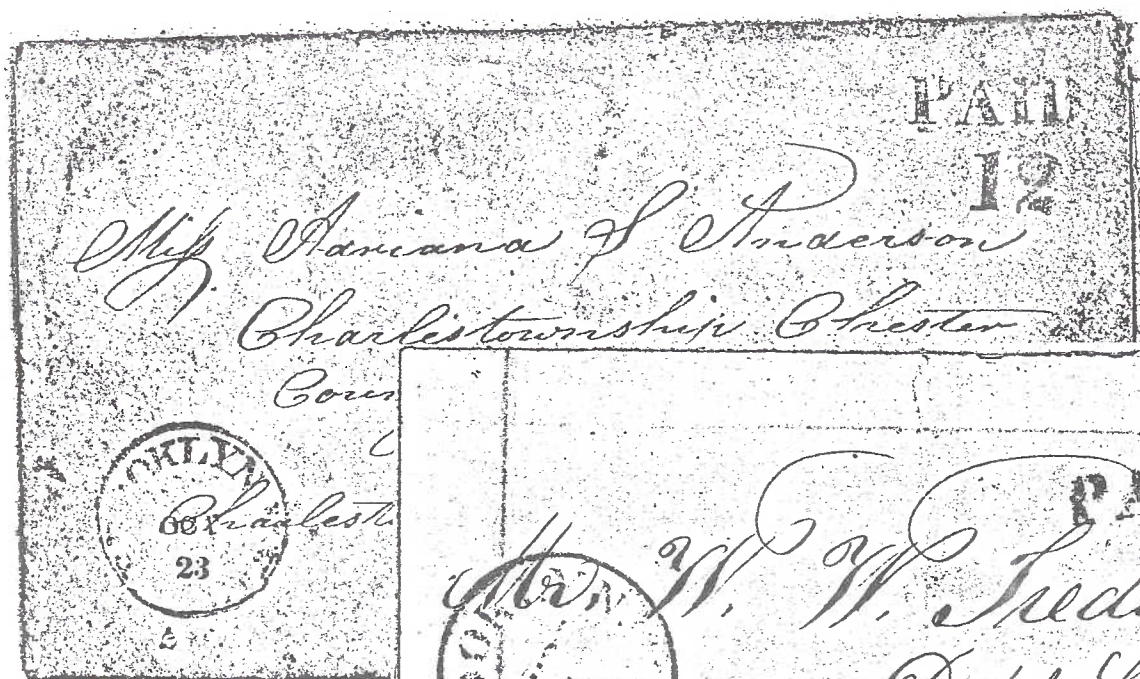 PAID
12
Miss Adriana S Anderson
Charlestownship Chester
Coun
OKLYN
OCT
23
Charlest
5
PA
Mr. W. W. Fred